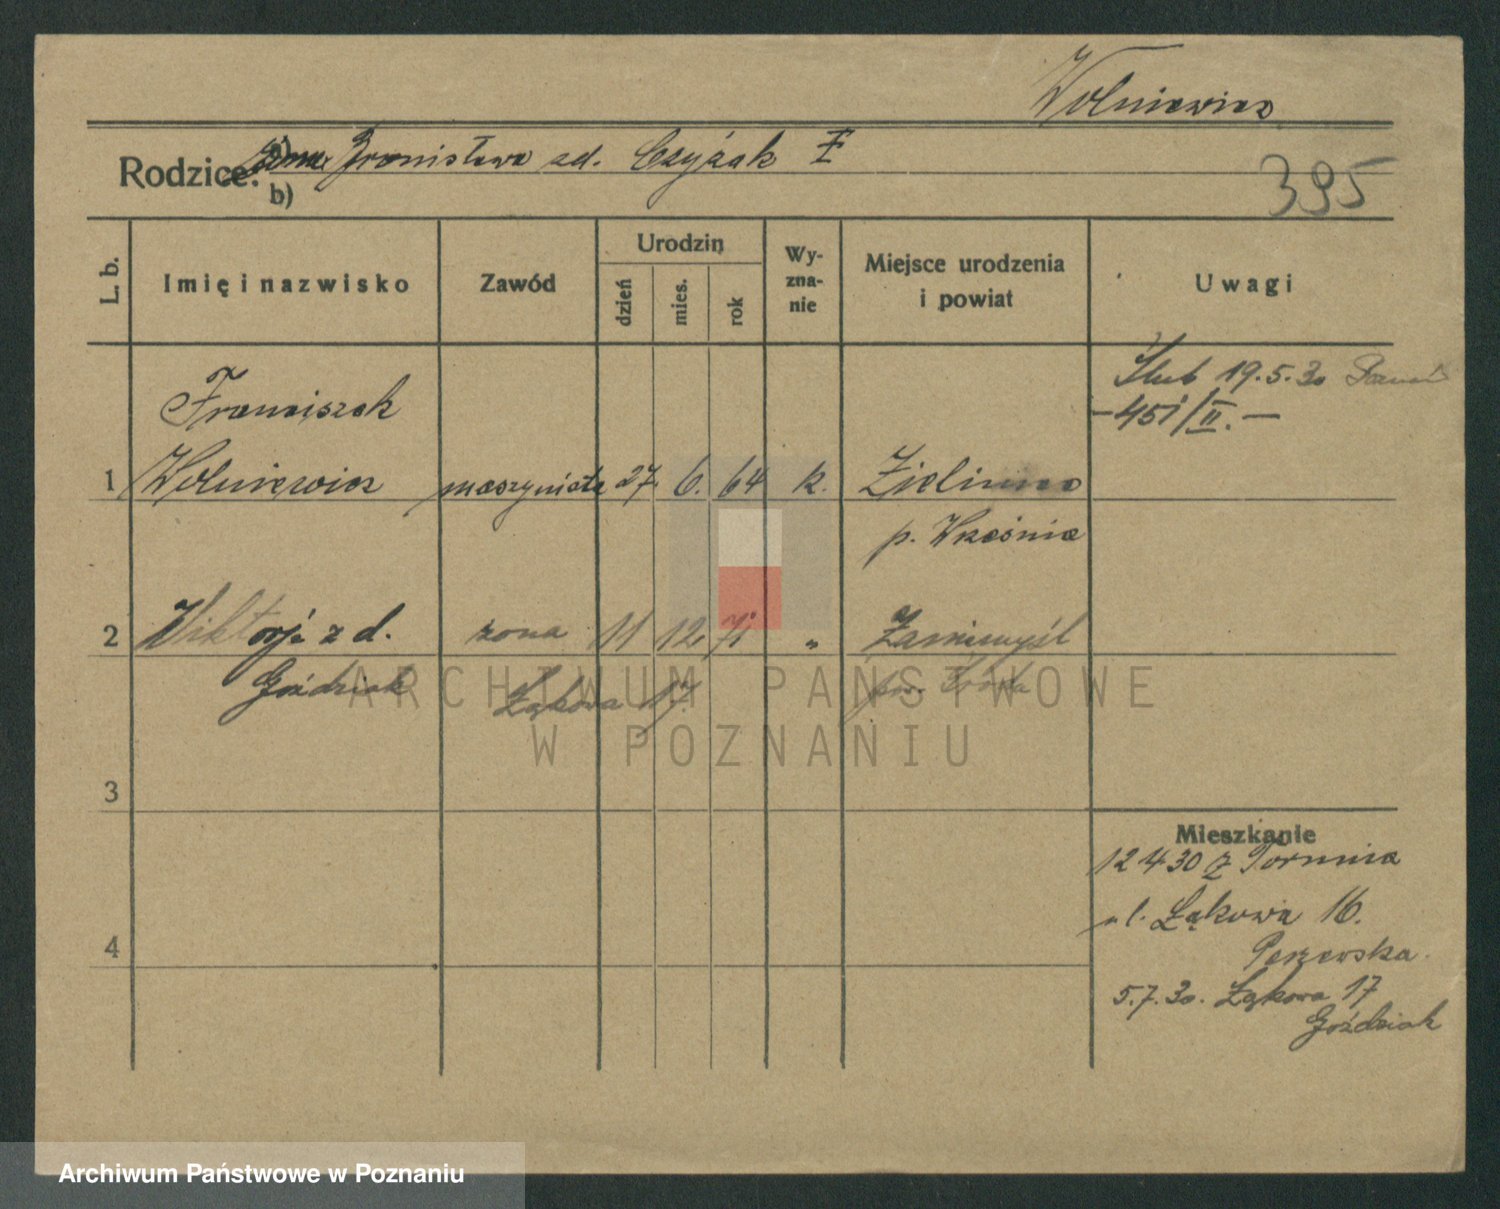 Wolniewicz
Rodzice: a) żona Bronisława zd. Czyżak
b)
395
L. b.
Imię i nazwisko
Zawód
Urodzin
dzień
mies.
rok
Wy-
zna-
nie
Miejsce urodzenia
i powiat
Uwagi
Ślub 19.5.30 Poznań
-451/II.-
Franciszek
1 Wolniewicz maszynista 27. 6. 64 k.
p. Września
2 Wiktorja z d. żona 11 12 71 „ Zaniemyśl
Goździak Łąkowa 17. pow. Środa
ARCHIWUM PAŃSTWOWE
W POZNANIU
3
Mieszkanie
12 4 30 z Torunia
ul. Łąkowa 16.
4
5.7.30. Łąkowa 17
Goździak
Archiwum Państwowe w Poznaniu